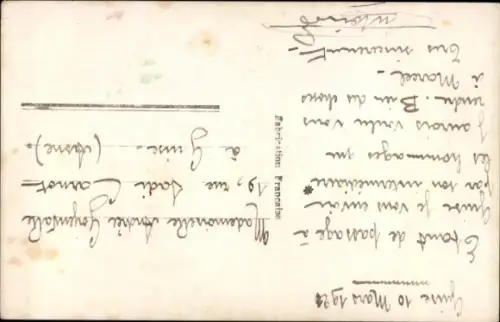 Guise 10 Mars 1921
Etant de passage à
Guise je vous envoie
par son intermédiaire
les hommages que
j'aurais voulu vous
rendre. Bien des choses
à Marcel.
Très sincèrement
Fabrication Française
Mademoiselle Andrée
19, rue Sadi Carnot
à Guise.
(Aisne)